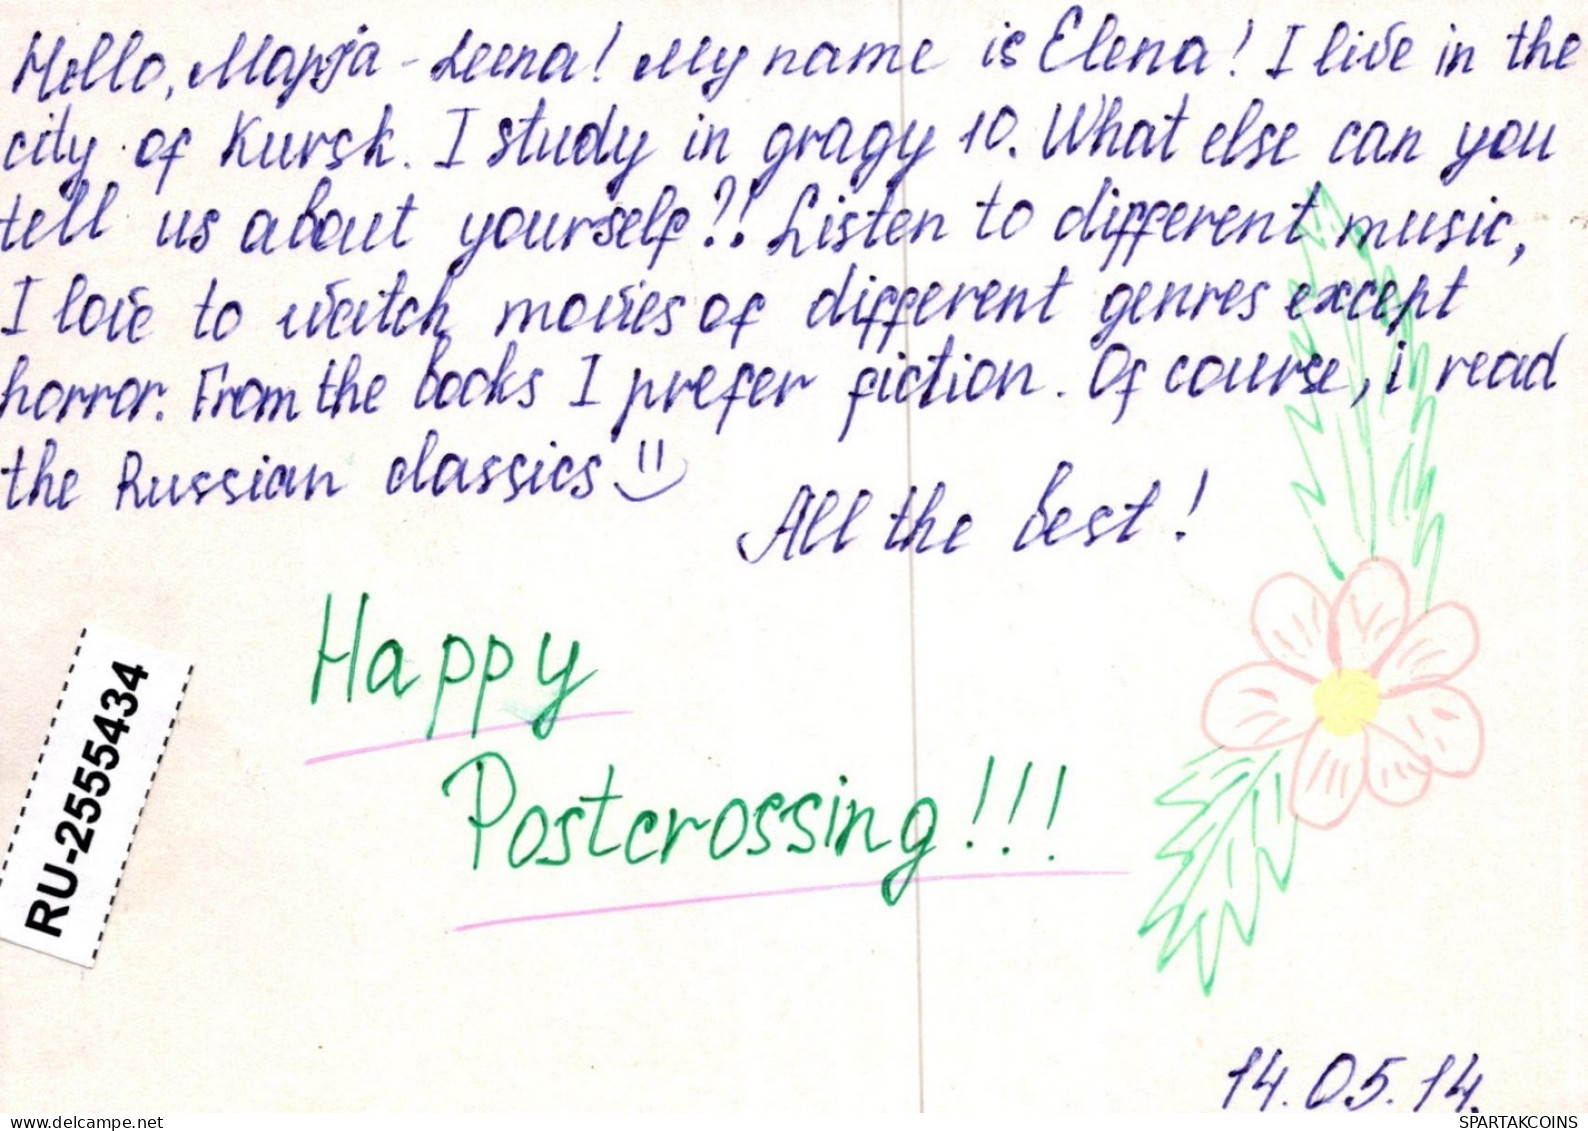 Hello, Mapja-Leena! My name is Elena! I live in the
city of Kursk. I study in gragy 10. What else can you
tell us about yourself?! Listen to different music,
I love to watch movies of different genres except
horror. From the books I prefer fiction. Of course, i read
the Russian classics
All the best!
Happy
Postcrossing!!!
RU-2555434
14.05.14.
www.delcampe.net
SPARTAKCOINS